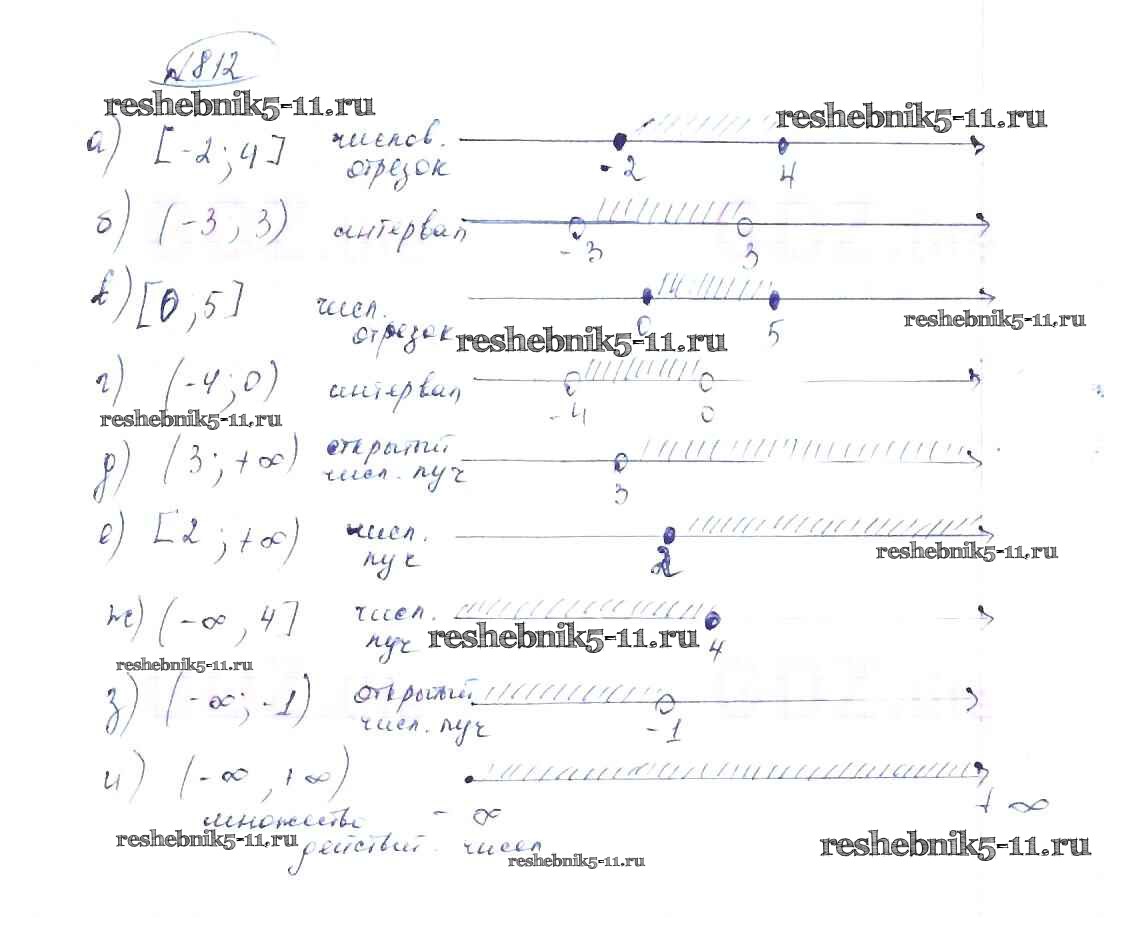 №812
reshebnik5-11.ru
reshebnik5-11.ru
а) [-2; 4] числов. отрезок -2 4
б) (-3; 3) интервал -3 3
в) [0; 5] числ. отрезок 0 5
reshebnik5-11.ru
reshebnik5-11.ru
г) (-4; 0) интервал -4 0
reshebnik5-11.ru
д) (3; +∞) открытый числ. луч 3
е) [2; +∞) числ. луч 2
reshebnik5-11.ru
ж) (-∞, 4] числ. луч 4
reshebnik5-11.ru
reshebnik5-11.ru
з) (-∞; -1) открытый числ. луч -1
и) (-∞, +∞)
- ∞ + ∞
множество
действит. чисел
reshebnik5-11.ru
reshebnik5-11.ru
reshebnik5-11.ru